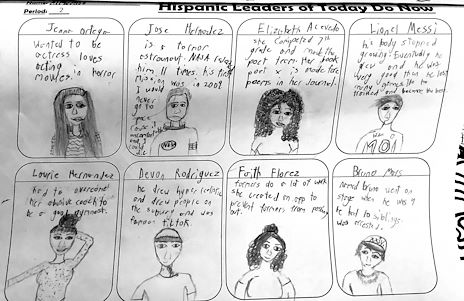 Hispanic Leaders of Today Do Now
Period: 2
Jenna ortega
wanted to be
actress loves
acting in horror
movies.
Jose Hernadez
is a former
astronaut. NASA
him 11 times. his first
mission was in 2009
I would
never go to
space
cause I
and could
die.
Elizabeth Acevedo
she Competed 7th
grade and made the
poet team. Her book
poet x is made
poems in her Journal.
Lionel Messi
his body stopped
growing. Eventually he
grew and he was
very good then he
and became the best
Laurie Hernandez
had to overcome
her abusive coach to
be a good gymnast.
Devon Rodriguez
he drew hyper
and drew people on
the subway and was
famous on tiktok.
Faith Florez
farmers do a lot of work
she created an app to
prevent farmers from
out.
Bruno Mars
named bruno went on
stage when he was 4
he had 6 siblings
was arrested.